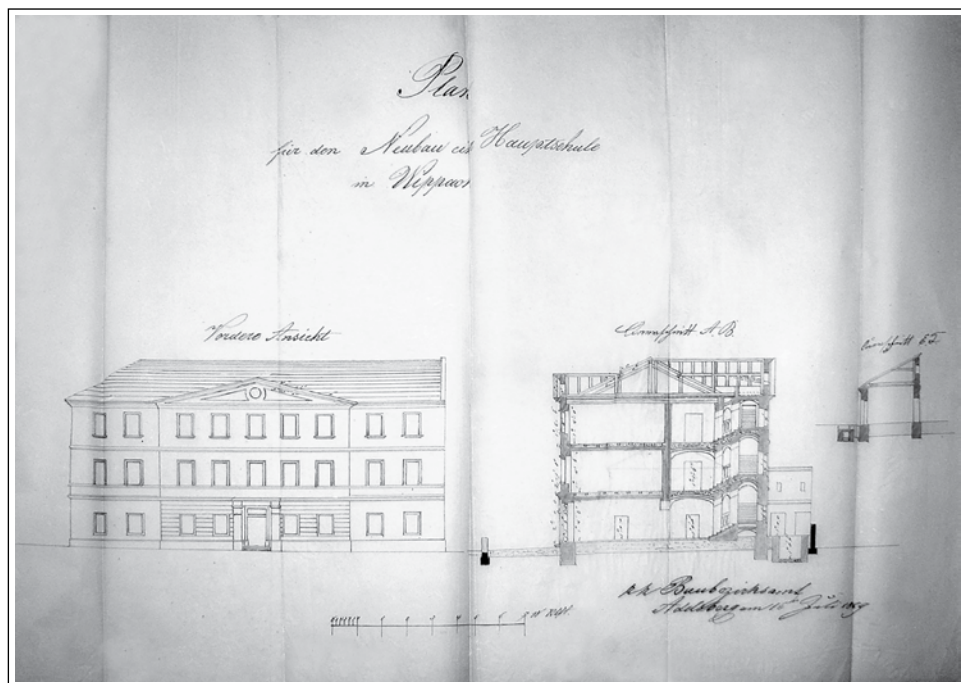 Plan
für den Neubau Hauptschule
in Wippach
Vordere Ansicht
Durchschnitt A. B.
Durchschnitt
k. k. Baubezirksamt
Adelsberg am Juli